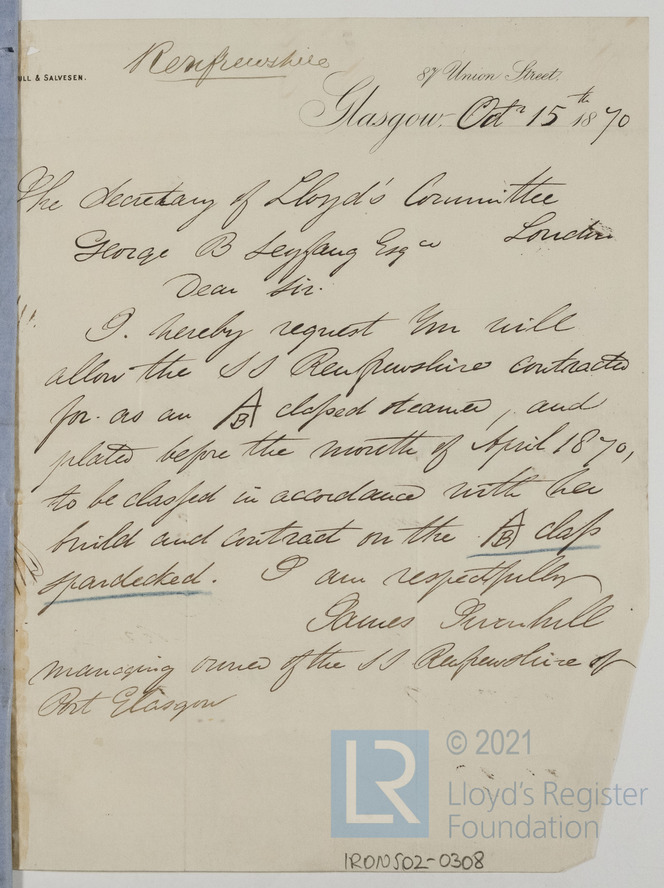 Renfrewshire
ULL & SALVESEN.
87 Union Street.
Glasgow. Octr 15th 1870
The Secretary of Lloyd's Committee
George B Seyfang Esqre London
Dear Sir.
I. hereby request you will
allow the SS Renfrewshire contracted
for. as an A/B classed steamer, and
plated before the month of April 1870,
to be classed in accordance with her
build and contract on the A/B class
spardecked. I am respectfully
James Turnbull
managing owner of the SS Renfrewshire of
Port Glasgow
LR © 2021
Lloyd's Register
Foundation
IRONS02-0308